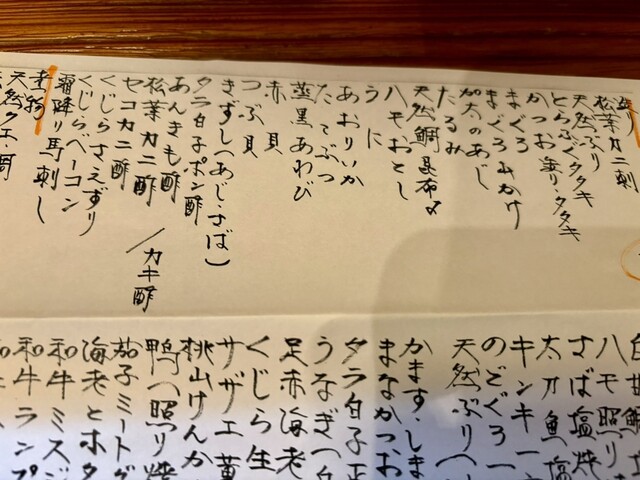 造り
松葉カニ刺
天然ぶり
とらふぐタタキ
かつお塩タタキ
まぐろ
まぐろ山かけ
加太のあじ
たるみ
天然鯛昆布〆
ハモおとし
うに
あおりいか
たてぶつ
蒸黒あわび
赤貝
つぶ貝
きずし(あじ・さば)
タラ白子ポン酢
あんきも酢
松葉カニ酢/カキ酢
セコカニ酢
くじらさえずり
くじらベーコン
霜降り馬刺し
天然クエ
ハモ照り
さば塩焼
太刀魚塩
キンキ一
のどぐろ一
天然ぶりへ
かます・しま
まながつお
タラ白子
うなぎへ白
足赤海老
くじら生
サザエ
桃山けんか
鴨へ照り焼
茄子ミートグ
海老とホタ
和牛ミスジ
和牛ランプ